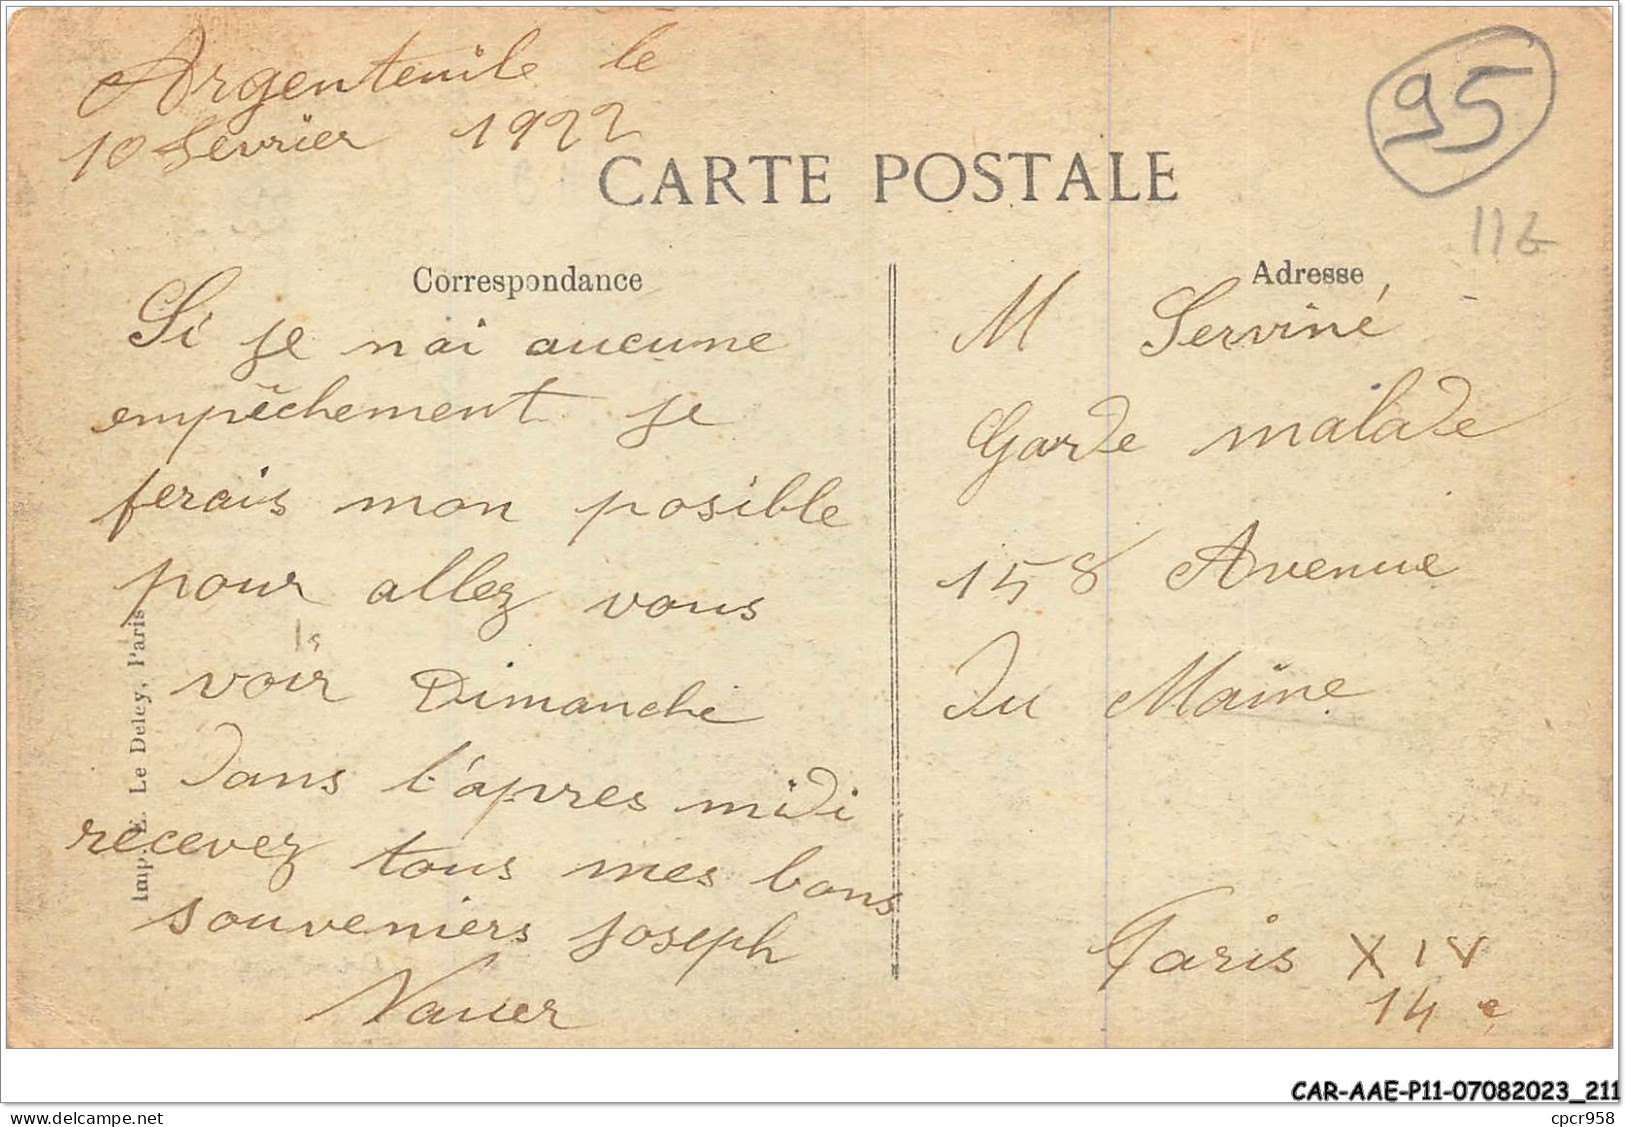 Argenteuile le
10 Fevrier 1922
95
CARTE POSTALE
Correspondance
Adresse
Si je n'ai aucune
empêchement je
ferais mon posible
pour allez vous
voir Dimanche
Dans l'apres midi
recevez tous mes bons
souveniers Joseph
M Serviné
Garde malade
158 Avenue
Du Maine
Paris XIV
14 e
Imp. E. Le Deley, Paris
CAR-AAE-P11-07082023_211
www.delcampe.net
cpcr958